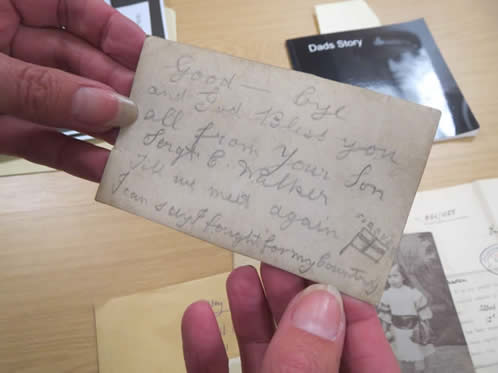 Good — bye
and God Bless you
all from your Son
Sergt E. Walker
Till we meet again
I can say I fought for my Country
Dads Story